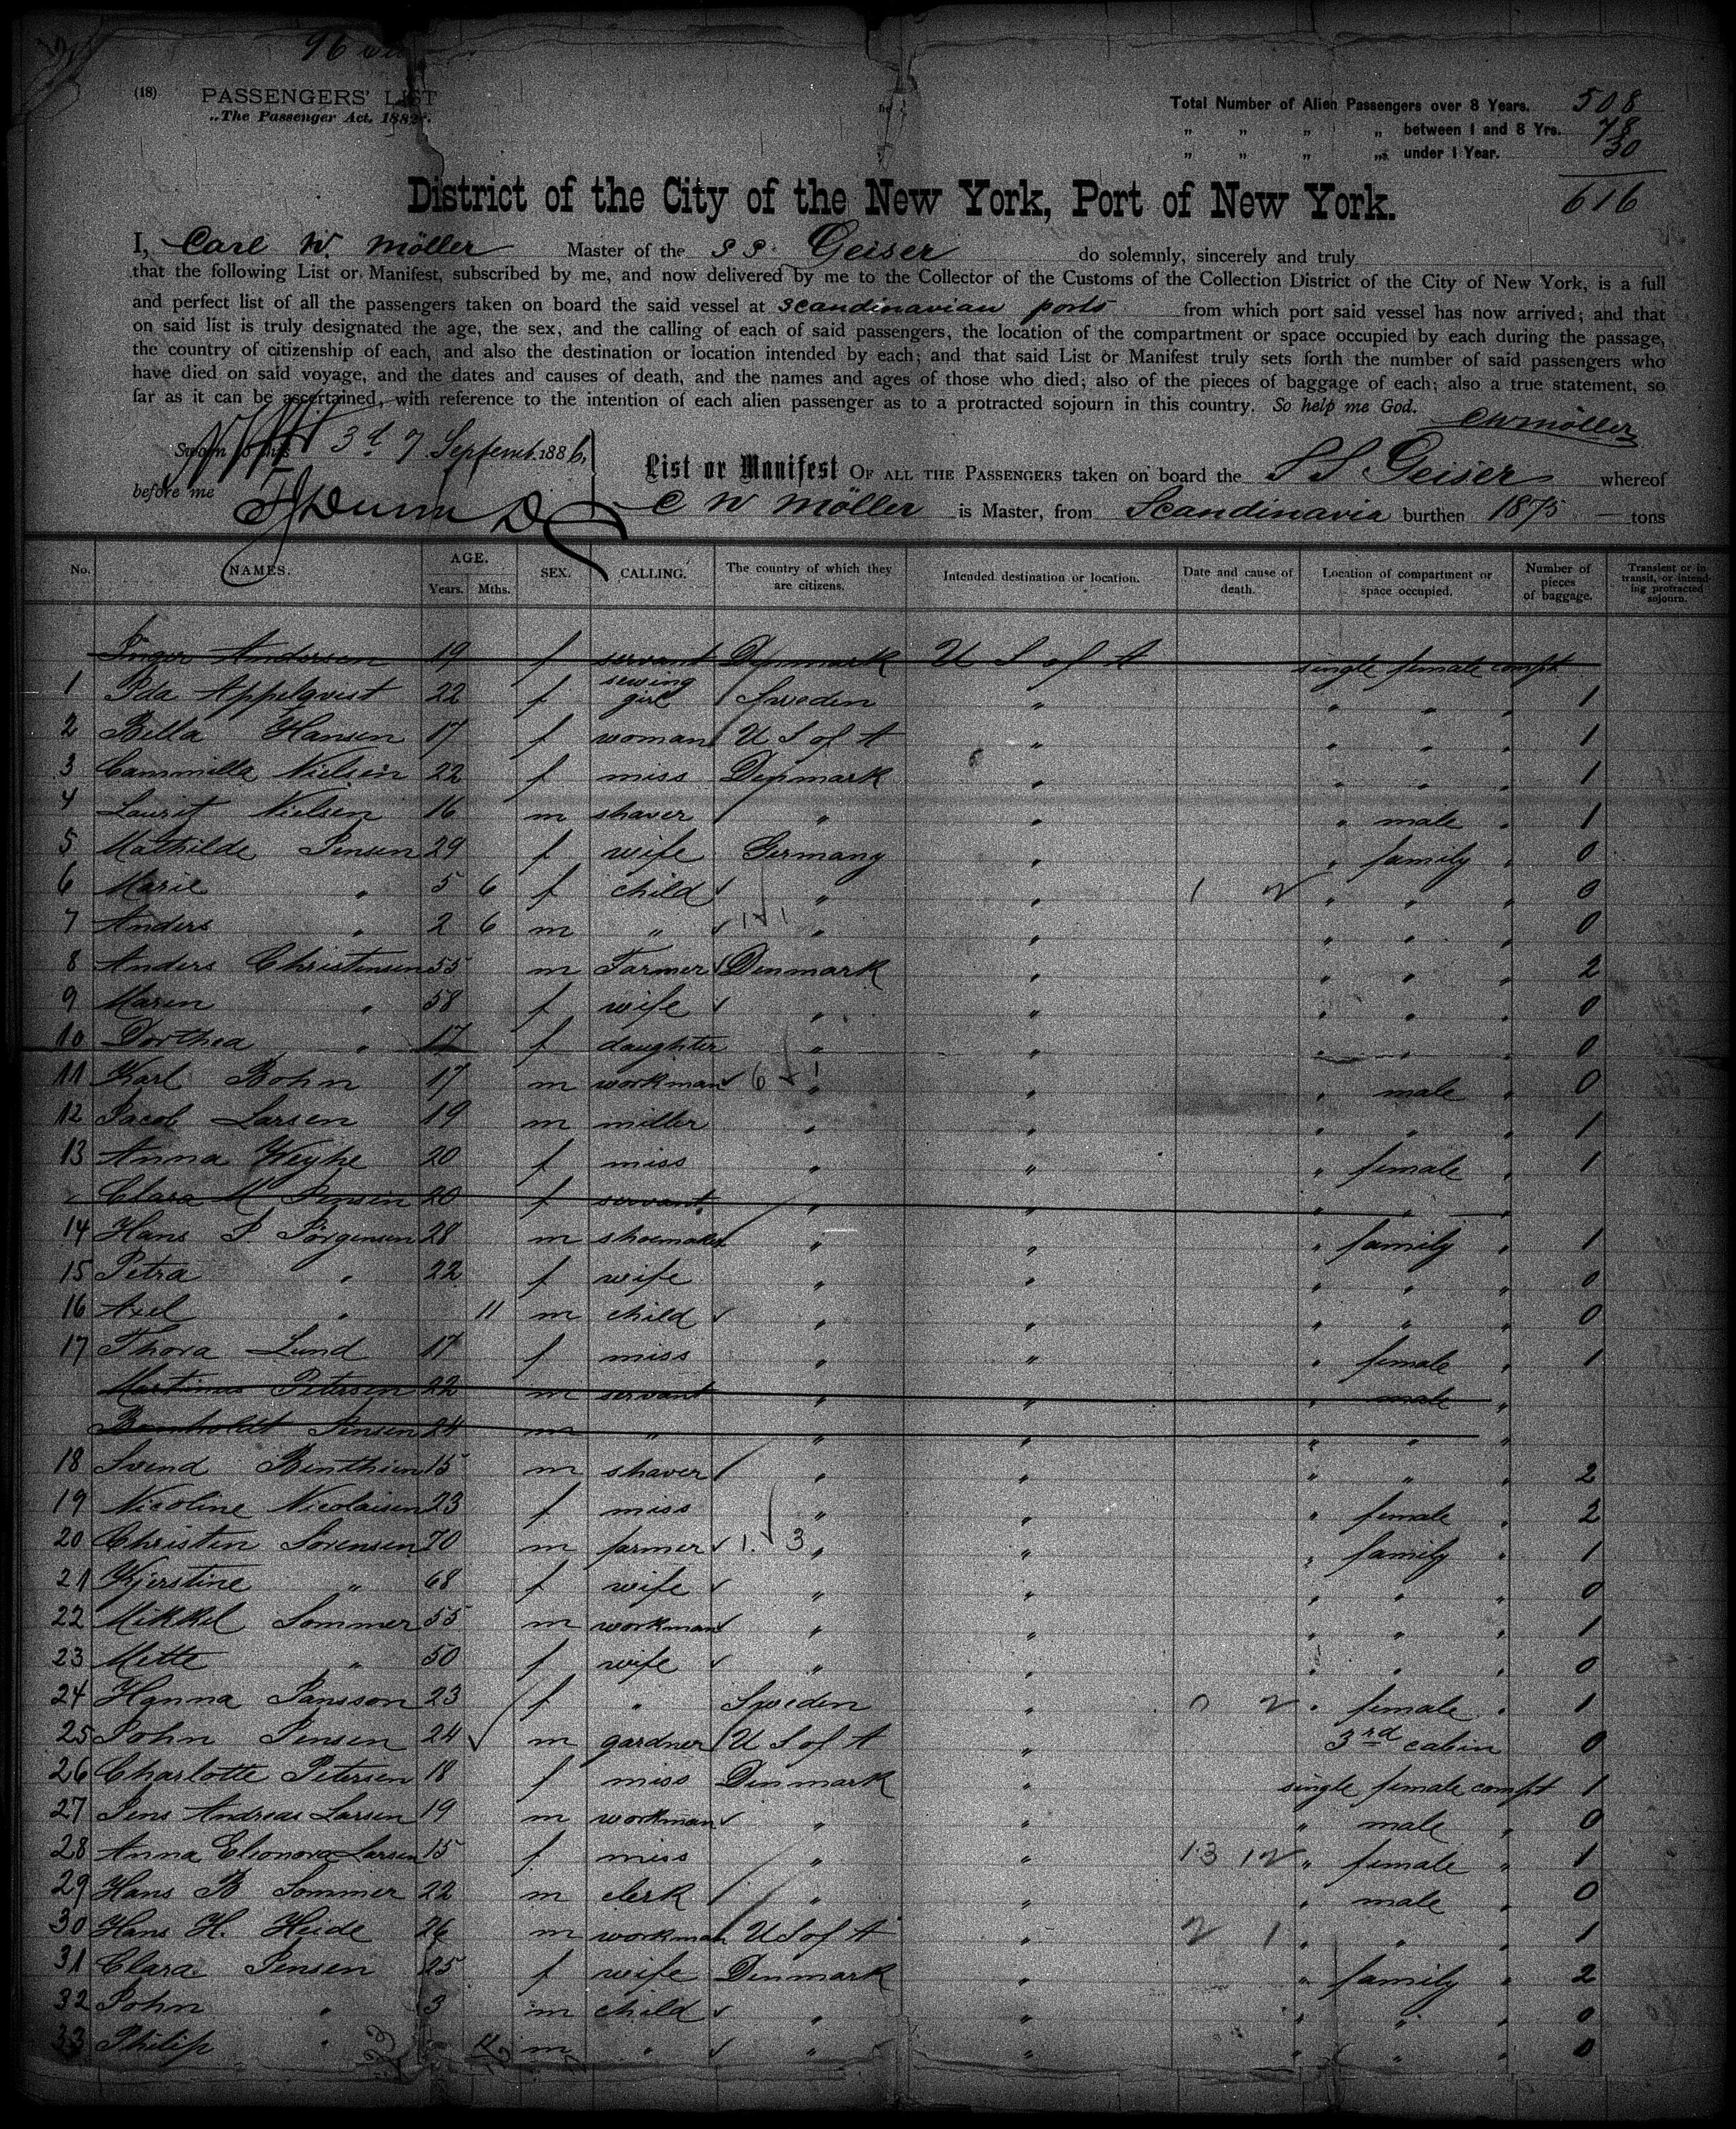 96
(18) PASSENGERS' LIST
„The Passenger Act. 1882".
Total Number of Alien Passengers over 8 Years. 508
„ „ „ „ between 1 and 8 Yrs. 78
„ „ „ „ under 1 Year. 30
616
District of the City of the New York, Port of New York.
I, Carl W. Möller Master of the SS. Geiser do solemnly, sincerely and truly
that the following List or Manifest, subscribed by me, and now delivered by me to the Collector of the Customs of the Collection District of the City of New York, is a full
and perfect list of all the passengers taken on board the said vessel at scandinavian ports from which port said vessel has now arrived; and that
on said list is truly designated the age, the sex, and the calling of each of said passengers, the location of the compartment or space occupied by each during the passage,
the country of citizenship of each, and also the destination or location intended by each; and that said List or Manifest truly sets forth the number of said passengers who
have died on said voyage, and the dates and causes of death, and the names and ages of those who died; also of the pieces of baggage of each; also a true statement, so
far as it can be ascertained, with reference to the intention of each alien passenger as to a protracted sojourn in this country. So help me God.
CWMöller
Sworn to this 3d 7 Septemb. 1886,
before me
List or Manifest OF ALL THE PASSENGERS taken on board the SS Geiser whereof
C W Möller is Master, from Scandinavia burthen 1875 — tons
No. NAMES. AGE. Years. Mths. SEX. CALLING. The country of which they are citizens. Intended destination or location. Date and cause of death. Location of compartment or space occupied. Number of pieces of baggage. Transient or in transit, or intending protracted sojourn.
Inger Andersen 19 f servant Denmark U S of A single female compt
1 Ida Appelqvist 22 f sewing girl Sweden „ „ „ „ 1
2 Bella Hansen 17 f woman U S of A „ „ „ „ 1
3 Cammilla Nielsen 22 f miss Denmark „ „ „ „ 1
4 Laurit Nielsen 16 m shaver „ „ „ male „ 1
5 Mathilde Jensen 29 f wife Germany „ „ family „ 0
6 Marie „ 5 6 f child „ „ 1 2 „ „ „ 0
7 Anders „ 2 6 m „ 1 1 „ „ „ „ „ 0
8 Anders Christensen 55 m Farmer Denmark „ „ „ „ 2
9 Maren „ 58 f wife „ „ „ „ „ 0
10 Dorthea „ 17 f daughter „ „ „ „ „ 0
11 Karl Bohn 17 m workman 6 1 „ „ „ male „ 0
12 Jacob Larsen 19 m miller „ „ „ „ „ 1
13 Anna Weyhe 20 f miss „ „ „ female „ 1
Clara M Jensen 20 f servant „ „ „ „ „
14 Hans P Jörgensen 28 m shoemaker „ „ „ family „ 1
15 Petra „ 22 f wife „ „ „ „ „ 0
16 Axel „ 11 m child „ „ „ „ „ 0
17 Thora Lund 17 f miss „ „ „ female „ 1
Martinus Petersen 22 m servant „ „ „ male „
Jensen 24 m „ „ „ „ „ „
18 Svend Binthien 15 m shaver „ „ „ „ „ 2
19 Nicoline Nicolaisen 23 f miss „ „ „ female „ 2
20 Christen Sörensen 70 m farmer 1. 3 „ „ „ family „ 1
21 Kjerstine „ 68 f wife „ „ „ „ „ 0
22 Mikkel Sommer 55 m workman „ „ „ „ „ 1
23 Mette „ 50 f wife „ „ „ „ „ 0
24 Hanna Jansson 23 f „ Sweden „ 0 2 „ female „ 1
25 John Jensen 24 m gardner U S of A „ 3rd cabin 0
26 Charlotte Petersen 18 f miss Denmark „ single female compt 1
27 Jens Andreas Larsen 19 m workman „ „ „ male „ 0
28 Anna Elionora Larsen 15 f miss „ „ 13 12 „ female „ 1
29 Hans B Sommer 22 m clerk „ „ „ male „ 0
30 Hans H. Heide 26 m workman U S of A „ 2 1 „ „ „ 1
31 Clara Jensen 25 f wife Denmark „ „ family „ 2
32 John „ 3 m child „ „ „ „ „ 0
33 Philip „ m „ „ „ „ „ „ 0